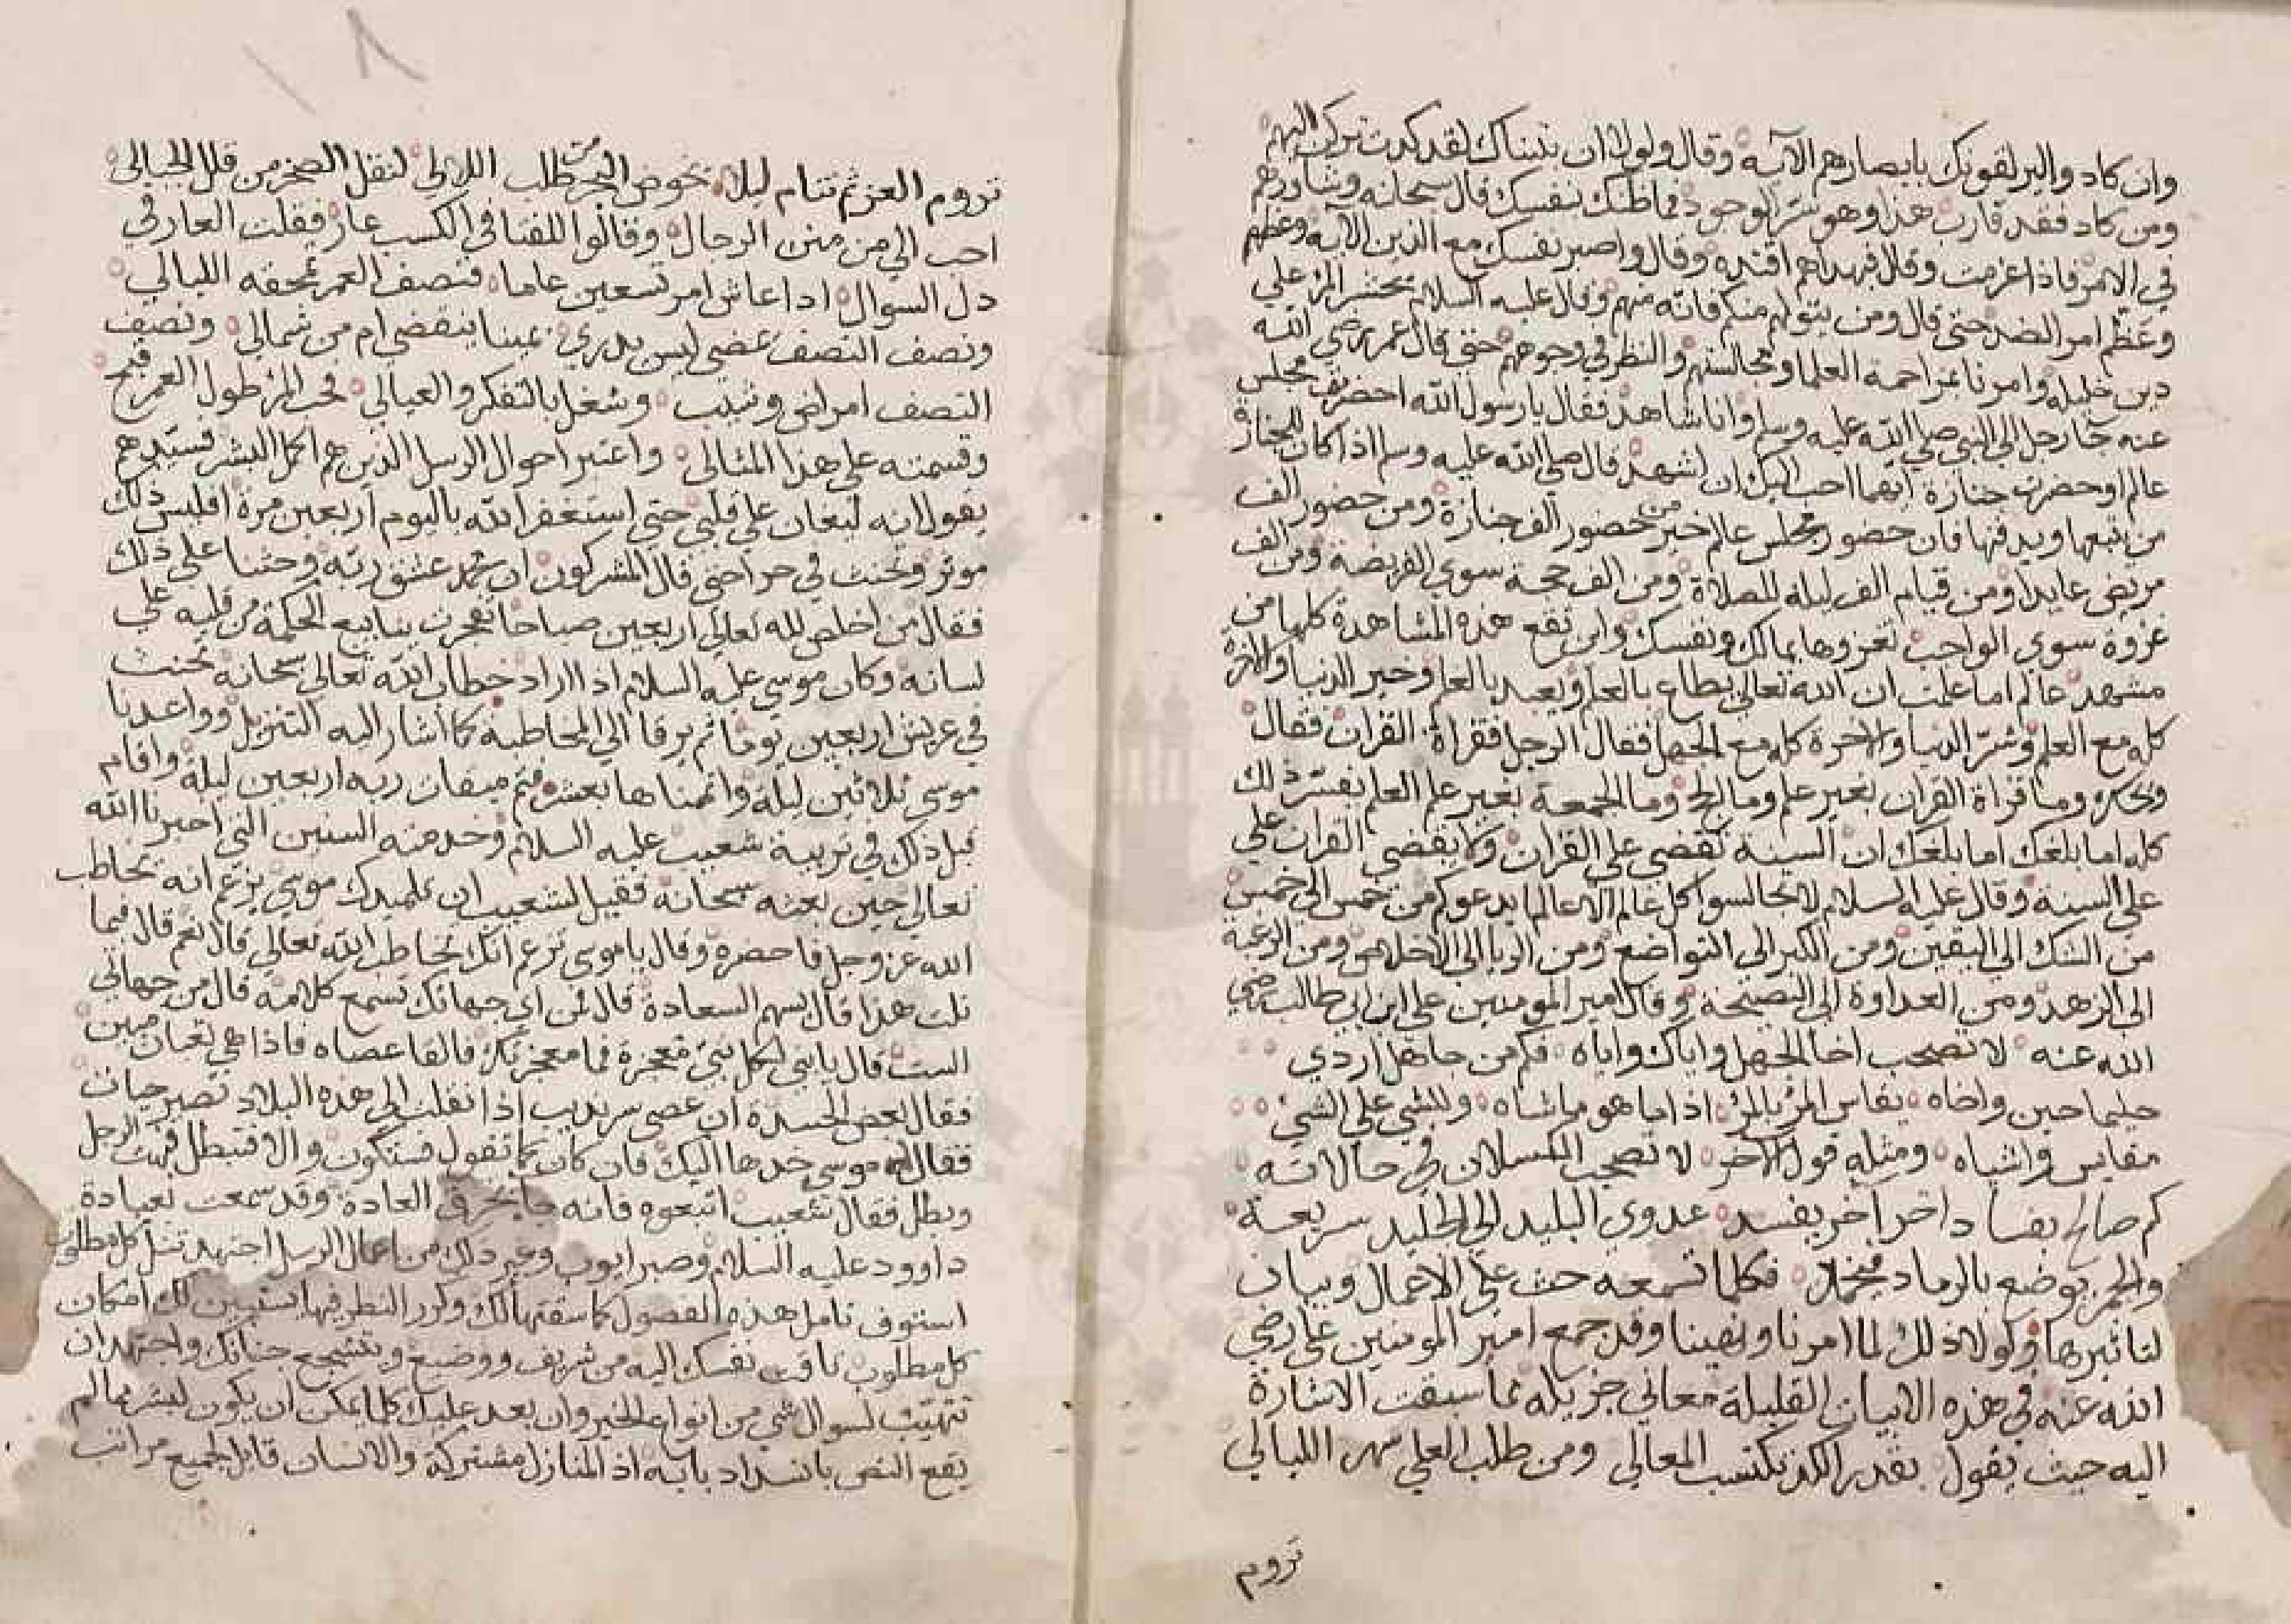 وان كادوا ليزلقونك بابصارهم الآية وقال ولولا ان ثبتناك لقد كدت تركن اليهم
ومن كاد فقد قارب هذا وهو سر الوجود فما ظنك نفسك قال سبحانه وشاورهم
في الامر فاذا عزمت وقال فبهداهم اقتده وقال واصبر نفسك مع الذين الآية وعظم
وعظم امر الضد حتى قال ومن يتولهم منكم فانه منهم وقال عليه السلام يحشر المرء علي
دين خليله وامرنا بمزاحمة العلما ومجالستهم والنظر في وجوههم حتى قال عمر رضي الله
عنه جا رجل الي النبي صلي الله عليه وسلم وانا شاهد فقال يا رسول الله احضرت مجلس
عالم او حضرت جنازة ايهما احب اليك ان اشهد قال صلي الله عليه وسلم اذا كان للجنازة
من يتبعها ويدفنها فان حضور مجلس عالم خير من حضور الف جنازة ومن حضور الف
مريض عايدا ومن قيام الف ليله للصلاة ومن الف حجة سوي الفريضة ومن الف
غزوة سوي الواجب تغزوها بمالك ونفسك واين تقع هذه المشاهدة كلها من
مشهد عالم اما علمت ان الله تعالي يطاع بالعلم ويعبد بالعلم وخير الدنيا والاخرة
كله مع العلم وشر الدنيا والاخرة كله مع الجهل فقال الرجل فقراة القران فقال
ويحك وما قراة القران بغير علم وما الحج وما الجمعة بغير علم العلم يفسر ذلك
كله اما بلغك اما بلغك ان السنة تقضي علي القران ولا يقضي القران علي
علي السنة وقال عليه السلام لا تجالسوا كل عالم الا عالما يدعوكم من خمس الي خمس
من الشك الي اليقين ومن الكبر الي التواضع ومن الريا الي الاخلاص ومن الرغبة
الي الزهد ومن العداوة الي النصيحة وقال امير المومنين علي ابن ابي طالب رضي
الله عنه لا تصحب اخا الجهل واياك واياه فكم من جاهل اردي
حليما حين واخاه يقاس المرء بالمرء اذا ما هو ماشاه وللشي علي الشي
مقايس واشباه ومثله قول الاخر لا تصحب الكسلان في حالاته
كم صالح بفساد اخر اخر يفسد عدوي البليد الي الجليد سريعة
والجمر يوضع بالرماد فيخمد فكلما تسمعه حث علي الاعمال وبيان
لتاثيرها ولولا ذلك لما امرنا ونهينا وقد جمع امير المومنين علي رضي
الله عنه في هذه الابيات القليلة معاني جزيله مما سبقت الاشارة
اليه حيث يقول بقدر الكد تكتسب المعالي ومن طلب العلي سهر الليالي
تروم
١٨
تروم العز ثم تنام ليلا يخوض البحر من طلب اللالي لنقل الصخر من قلل الجبالي
احب الي من منن الرجال وقالوا للفتا في الكسب عار فقلت العار في
ذل السوال اذا عاش امرء تسعين عاما فنصف العمر تمحقه الليالي
ونصف النصف يمضي ليس يدري يمينا ينقضي ام من شمالي ونصف
النصف امراض وشيب وشغل بالتفكر والعيالي فحب المرء طول العمر قبح
وقسمته علي هذا المثالي واعتبر احوال الرسل الذين هم اكمل البشر فسيدهم
يقول انه ليغان علي قلبي حتي استغفر الله باليوم اربعين مرة افليس ذلك
موثر وتحنث في حرا حتى قال المشركون ان محمد عشق ربه وحثنا علي ذلك
فقال من اخلص لله تعالي اربعين صباحا تفجرت ينابيع الحكمة من قلبه علي
لسانه وكان موسي عليه السلام اذا اراد خطاب الله تعالي سبحانه تحنث
في عريش اربعين يوما ثم يرقا الي المخاطبة كما اشار اليه التنزيل وواعدنا
موسي ثلاثين ليلة واتممناها بعشر فتم ميقات ربه اربعين ليلة واقام
قبل ذلك في تربية شعيب عليه السلام وخدمته السنين التي اخبرنا الله
تعالي حين بعثه سبحانه فقيل لشعيب ان تلميدك موسي يزعم انه يخاطب
الله عز وجل فاحضره وقال يا موسي تزعم انك تخاطب الله تعالي قال نعم قال فبما
نلت هذا قال بسهم السعادة قال فمن اي جهاتك تسمع كلامه قال من جهاتي
الست قال يا بني لكل نبي معجزة فما معجزتك فالقا عصاه فاذا هي ثعبان مبين
فقال بعض الحسدة ان عصي سرنديب اذا نقلت الي هذه البلاد تصير حيات
فقال له موسي خدها اليك فان كان كما تقول فستكون والا فتبطل فبهت الرجل
وبطل فقال شعيب اتبعوه فانه جا بخرق العادة وقد سمعت تعبادة
داوود عليه السلام وصبر ايوب وغير ذلك من اعمال الرسل اجتهد تنل كل مطلوب
استوف تامل هذه الفصول كما سقتها لك وكرر النظر فيها يستبين لك امكان
كل مطلوب تاقت نفسك اليه من شريف ووضيع وتشجيع جنانك واجتهد ان
تتهيب لسوال شي من انواع الخير وان بعد عليك كلما يمكن ان يكون لبشر مما لم
يقع النص بانسداد بابه اذ المنازل مشتركة والانسان قابل لجميع مراتب